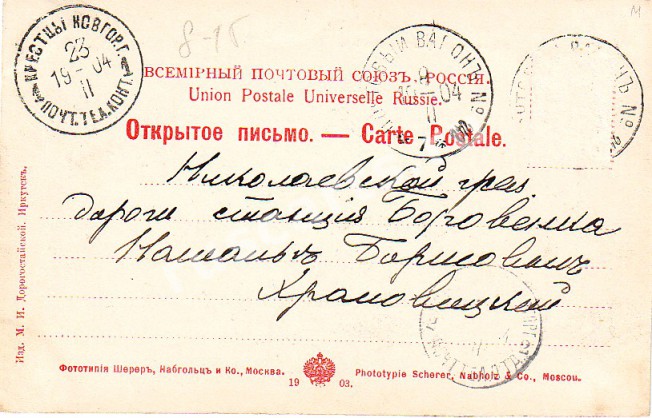 8-1Г
М
КРЕСТЦЫ НОВГОР.Г.
23
19-04
II
ПОЧТ.ТЕЛ.КОНТ.
ВАГОНЪ №
04
II
№
ВСЕМІРНЫЙ ПОЧТОВЫЙ СОЮЗЪ. РОССІЯ.
Union Postale Universelle Russie.
Открытое письмо. — Carte Postale.
Николаевской
дороги станція Боровенка
Наталіи Борисовнѣ
Храповицкой
Изд. М. И. Дорогостайской, Иркутскъ.
Фототипія Шереръ, Набгольцъ и Ко., Москва.
19 03.
Phototypie Scherer, Nabholz & Co., Moscou.